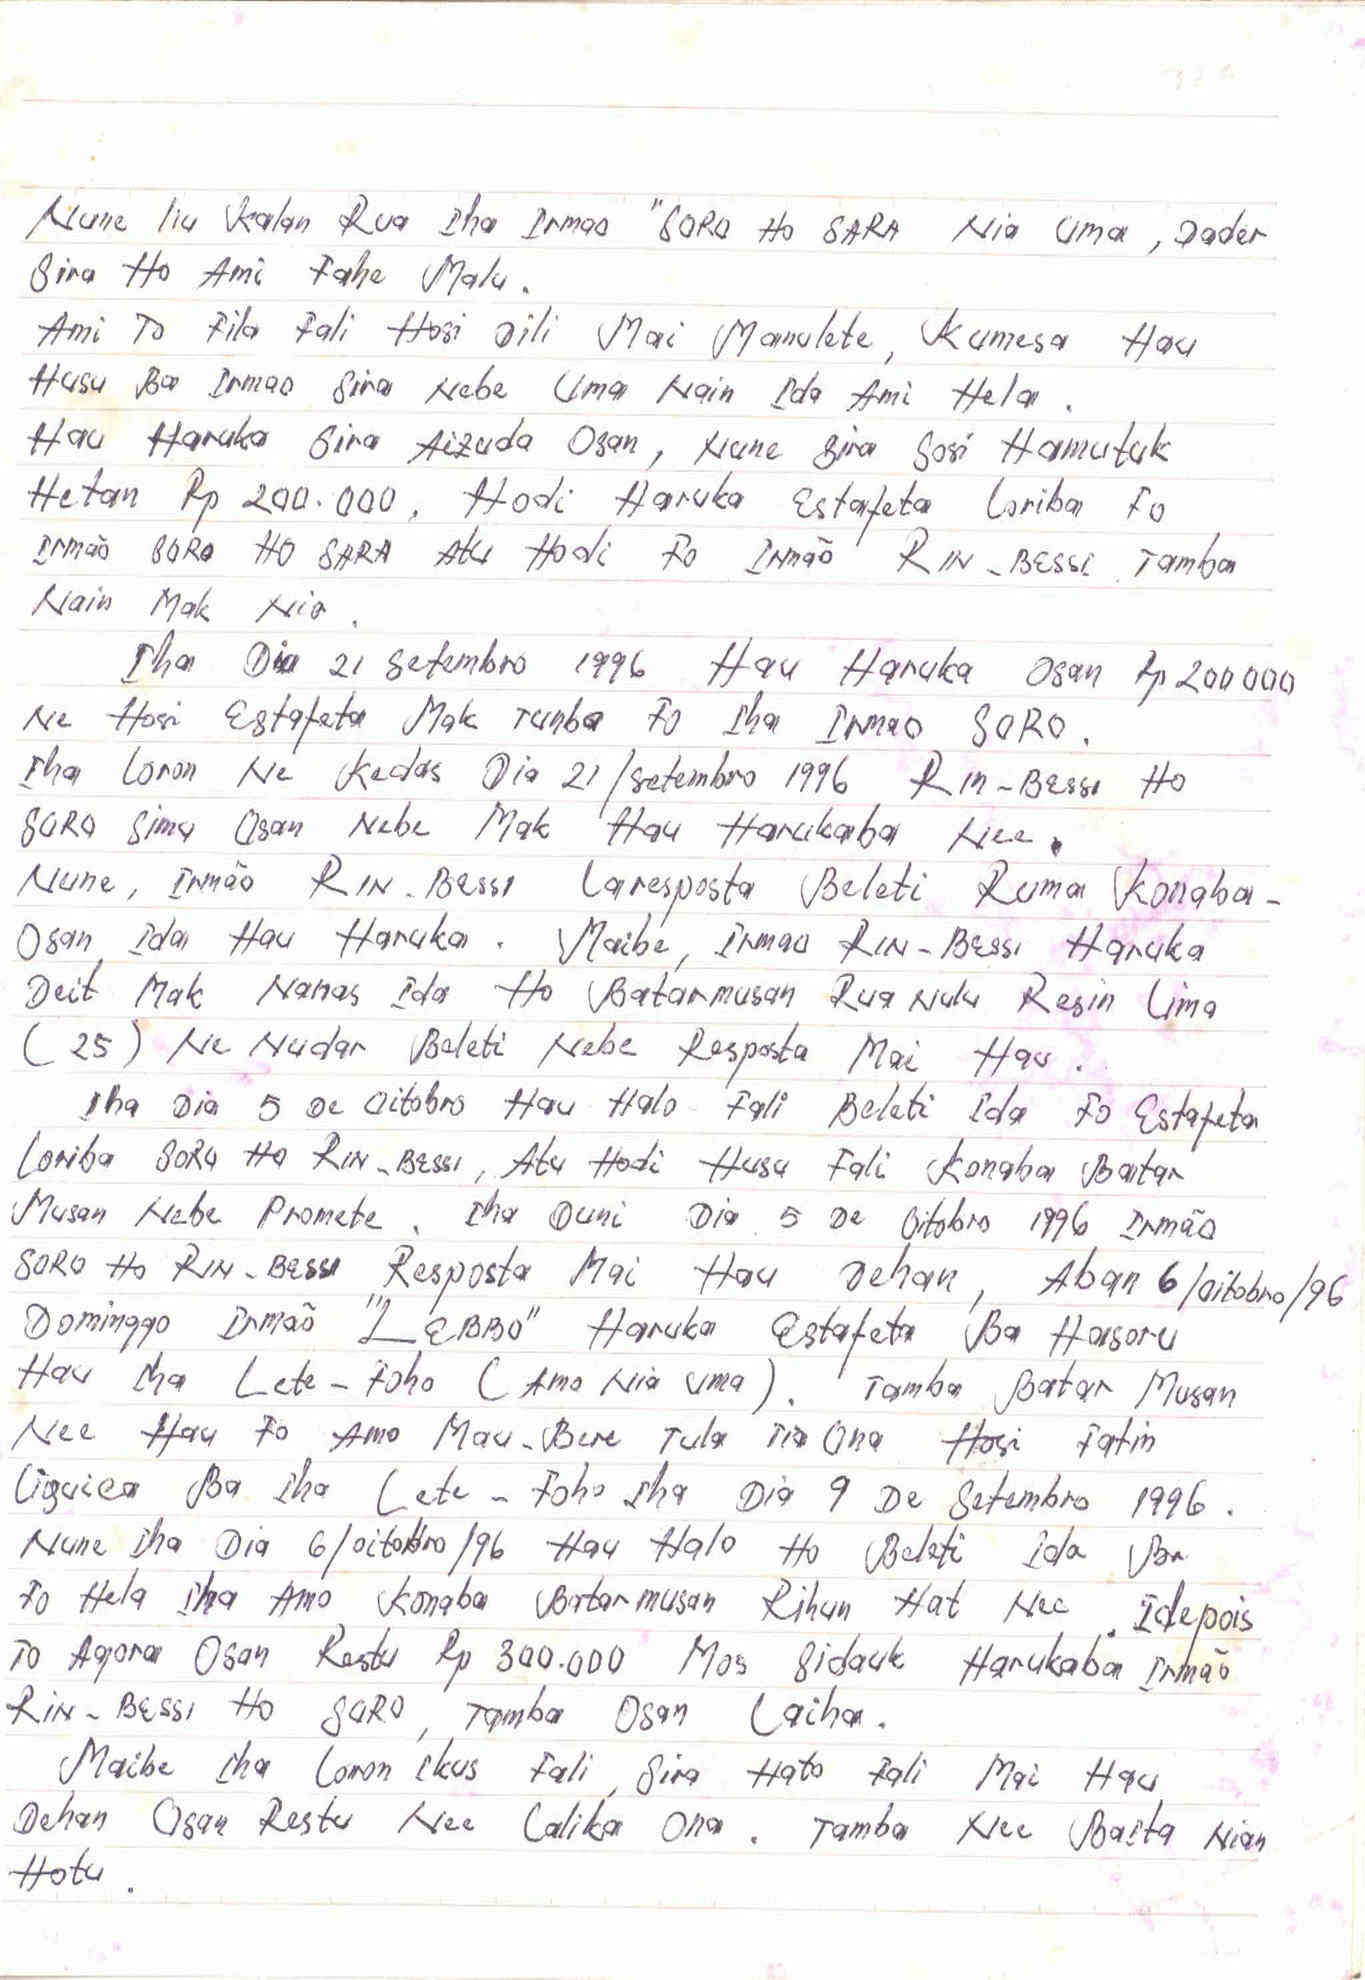 Nune liu Kalan Rua Iha Irmao "SORO HO SARA Nia Uma, Dader
Sira Ho Ami Fahe Malu.
Ami To Fila Fali Hosi Dili Mai Manulete, Kumesa Hau
Husu Ba Irmao Sira Nebe Uma Nain Ida Ami Hela.
Hau Haruka Sira Aizuda Osan, Nune Sira Sosi Hamutuk
Hetan Rp 200.000, Hodi Haruka Estafeta Loriba Fo
Irmão SORO HO SARA Atu Hodi Fo Irmão RIN-BESSI Tamba
Nain Mak Nia.
Iha Dia 21 Setembro 1996 Hau Haruka Osan Rp 200000
Ne Hosi Estafeta Mak Tunba Fo Iha Irmao SORO.
Iha Loron Ne Kedas Dia 21/Setembro 1996 RIN-BESSI Ho
SORO Simu Osan Nebe Mak Hau Harukaba Nee.
Nune, Irmão RIN-BESSI Laresposta Beleti Ruma Konaba-
Osan Ida Hau Haruka. Maibe, Irmao RIN-BESSI Haruka
Deit Mak Nanas Ida Ho Batarmusan Rua Nulu Resin Lima
(25) Ne Nudar Beleti Nebe Resposta Mai Hau.
Iha Dia 5 De Oitobro Hau Halo Fali Beleti Ida Fo Estafeta
Loriba SORO HO RIN-BESSI, Atu Hodi Husu Fali Konaba Batar
Musan Nebe Promete. Iha Duni Dia 5 De Oitobro 1996 Irmão
SORO HO RIN-BESSI Resposta Mai Hau Dehan, Aban 6/Oitobro/96
Dominggo Irmão "LEBBO" Haruka Estafeta Ba Hasoru
Hau Iha Lete-Foho (Amo Nia Uma). Tamba Batar Musan
Nee Hau Fo Amo Mau-Bere Tula Tia Ona Hosi Fatin
Liquica Ba Iha Lete-Foho Iha Dia 9 De Setembro 1996.
Nune Iha Dia 6/Oitobro/96 Hau Halo Ho Beleti Ida Ba
Fo Hela Iha Amo Konaba Batarmusan Rihun Hat Nee. Idepois
To Agora Osan Restu Rp 300.000 Mos Sidauk Harukaba Irmão
RIN-BESSI HO SORO, Tamba Osan Laiha.
Maibe Iha Loron Ikus Fali, Sira Hato Fali Mai Hau
Dehan Osan Restu Nee Lalika Ona. Tamba Nee Basta Nian
Hotu.